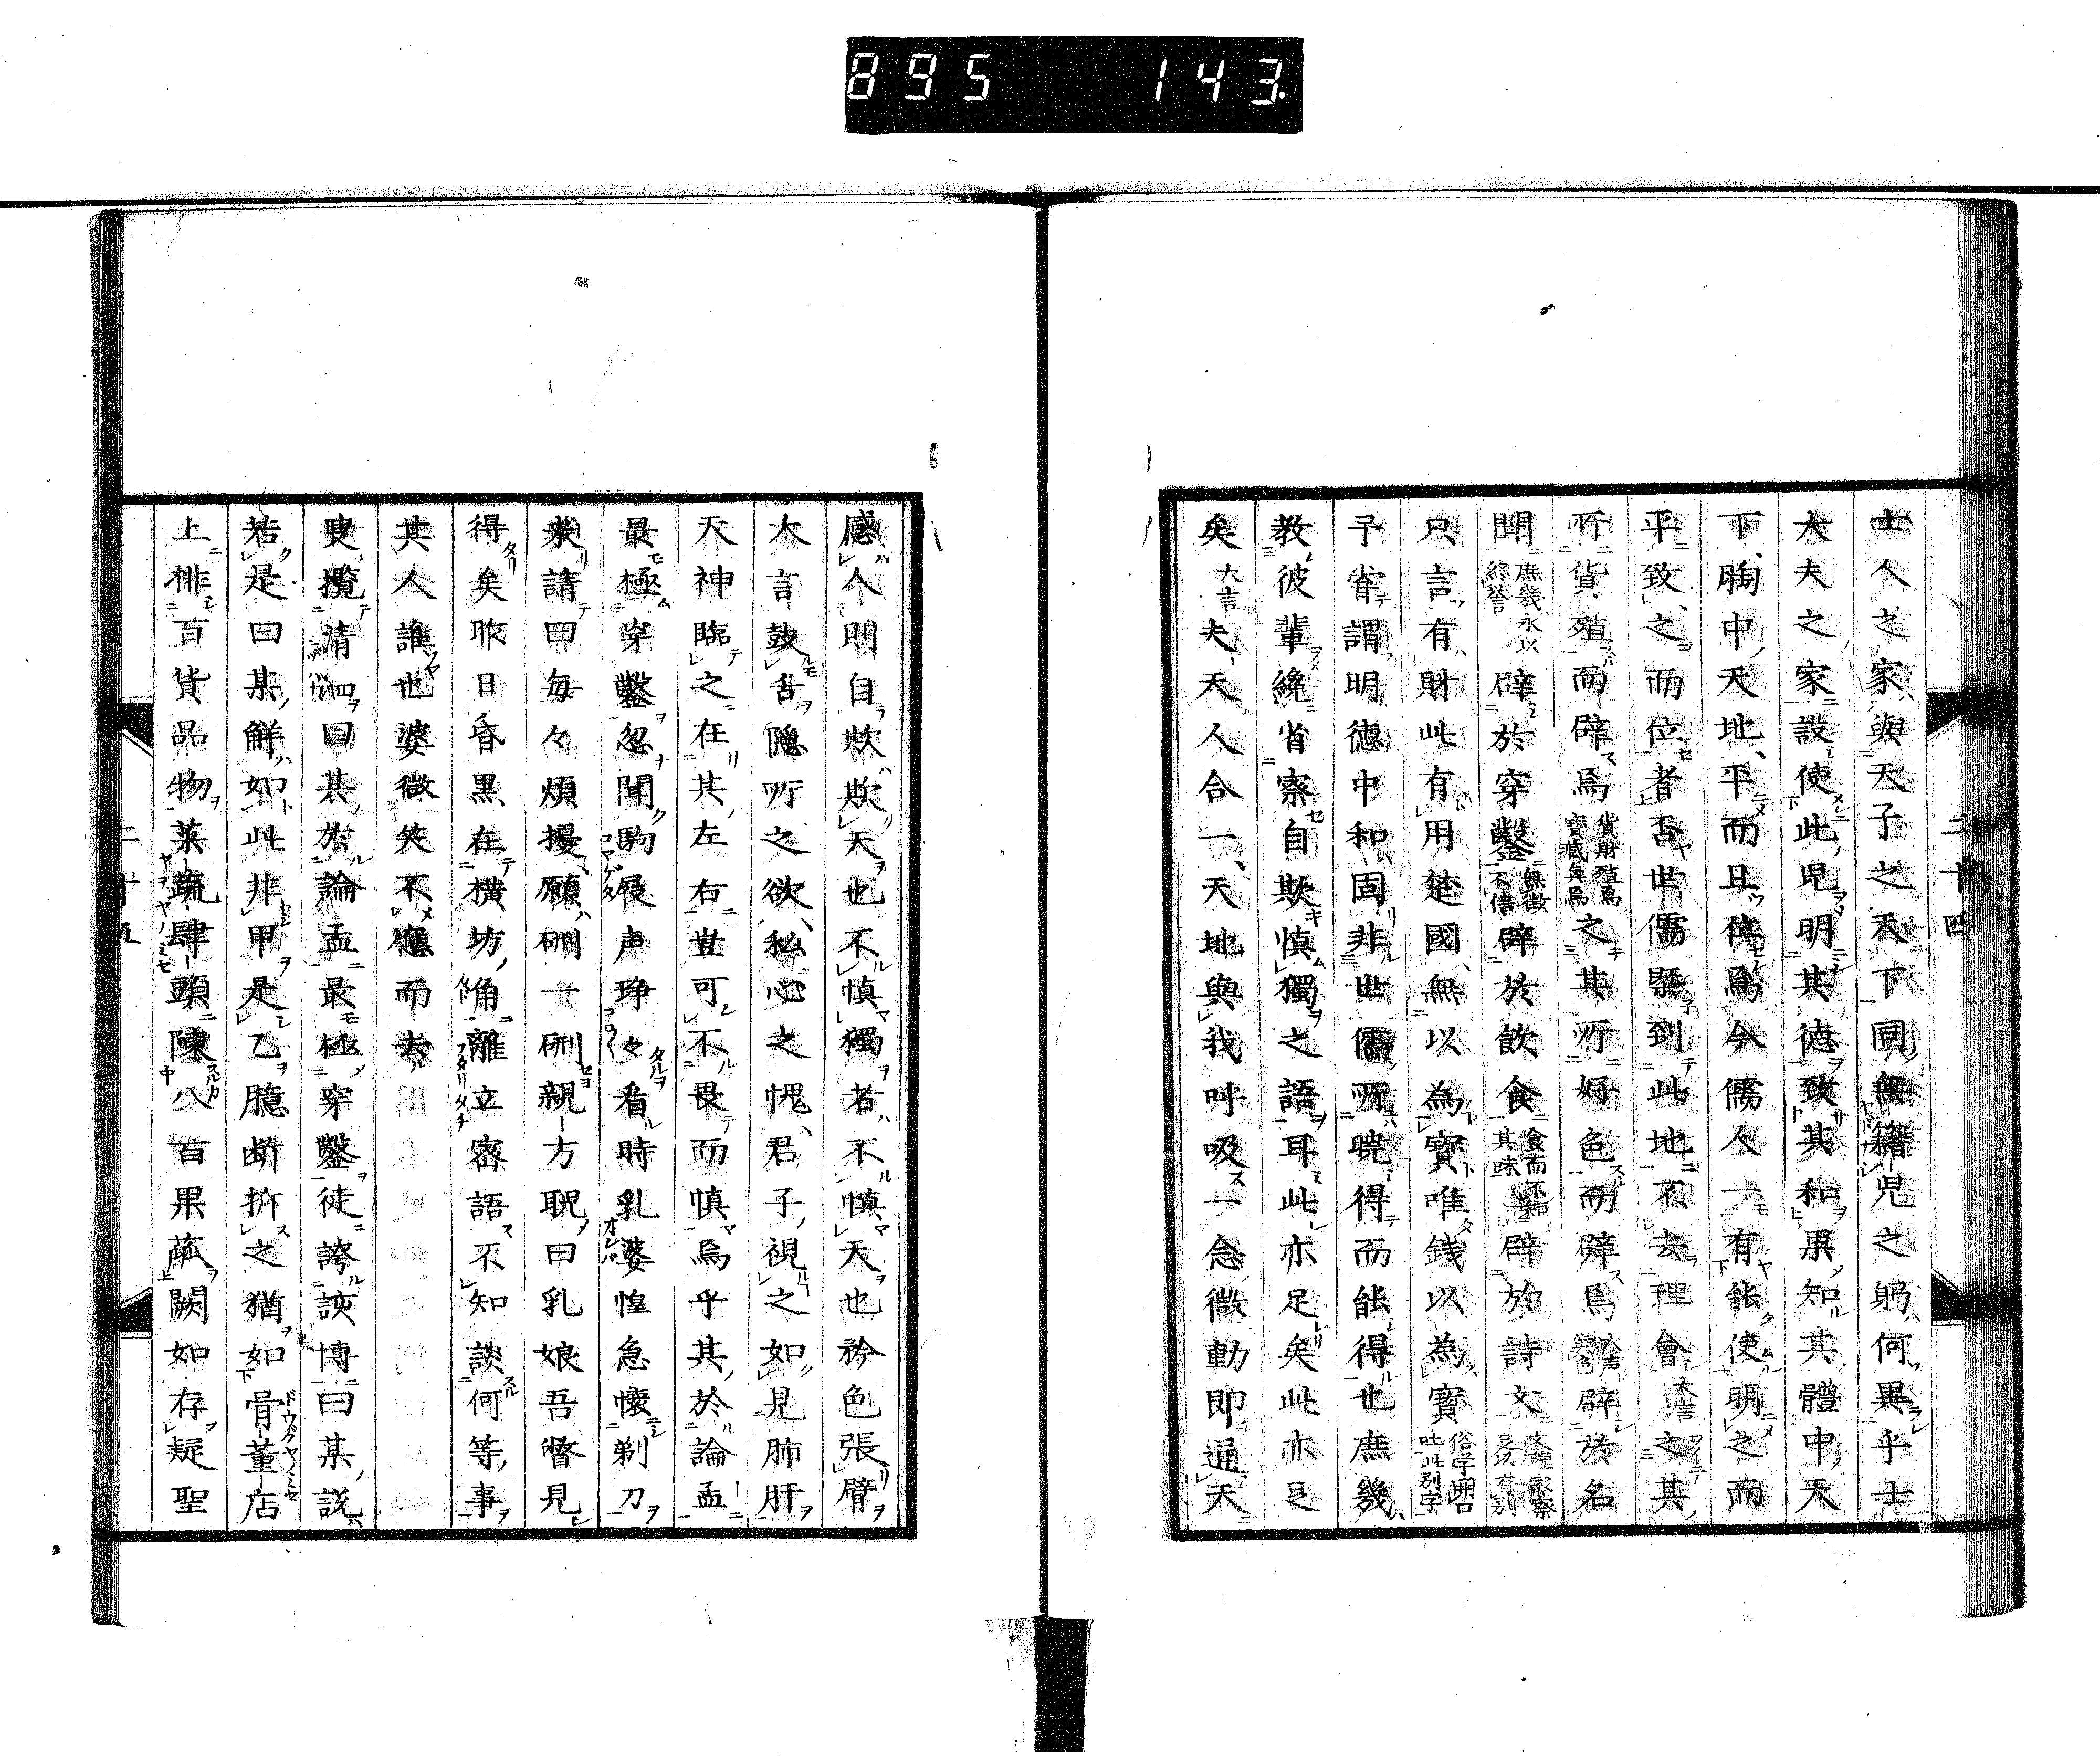 895 143
士人之家與天子之天下同無籍児之躬何異乎士
大夫之家設使此児明其德致其和果知其體中天
下胸中天地平而且偉焉今儒人一有能使明之而
平致之而位者否世儒懸到此地不去理會大言之其
所貨殖而辟焉貨財殖焉寶蔵與焉之其所好色而辟焉辟於名
聞庶幾永以終譽辟於穿鑿無徴不信辟於飲食食而不知其味辟於詩文文理密察足以有別
只言有財此有用楚國無以為寶唯錢以為寶吐此別字
予嘗謂明德中和固非世儒所暁得而能得也庶幾
教彼輩纔省察自欺慎獨之語耳此亦足矣此亦足
矣大言夫天人合一天地與我呼吸一念微動即通天
二十四
感人則自欺欺天也不慎獨者不慎天也矜色張臂
大言鼓舌隱所之欲私心之愧君子視之如見肺肝
天神臨之在其左右豈可不畏而慎焉乎其於論孟
最極穿鑿忽聞駒屐声琤々看時乳婆惶急懷剃刀
来請曰毎々煩擾願硎一硎親方聡曰乳娘吾瞥見
得矣昨日昏黒在横坊角離立密語不知談何等事
其人誰也婆微笑不應而去
叟攬清泗曰其於論孟最極穿鑿徒誇談博曰某説
若是曰某觧如此非甲是乙臆断拆之猶如骨董店
上排百貨品物菜蔬肆頭陳八百果蓏闕如存疑聖
二十五